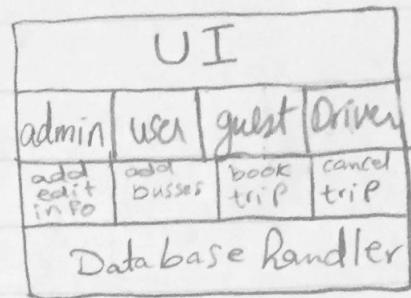 UI
admin user guest Driver
add edit info
add busses
book trip
cancel trip
Database handler